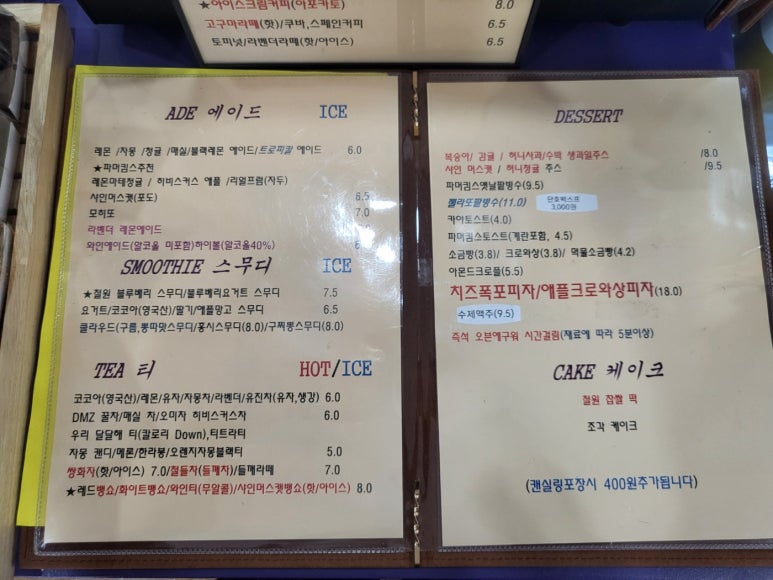 ★아이스크림커피(아포카토) 8.0
고구마라떼(핫)/쿠바,스페인커피 6.5
토피넛/라벤더라떼(핫/아이스) 6.5
ADE 에이드 ICE
레몬 /자몽 /청귤 /매실/블랙레몬 에이드/트로피칼 에이드 6.0
★파머킴스추천
레몬마테청귤 / 히비스커스 애플 /리얼프람(자두)
샤인머스켓(포도) 6.5
모히또 7.0
라벤더 레몬에이드
와인에이드(알코올 미포함)하이볼(알코올40%)
SMOOTHIE 스무디 ICE
★철원 블루베리 스무디/블루베리요거트 스무디 7.5
요거트/코코아(영국산)/딸기/애플망고 스무디 6.5
클라우드(구름,뽕따맛스무디/홍시스무디(8.0)/구찌뽕스무디(8.0)
TEA 티 HOT/ICE
코코아(영국산)/레몬/유자/자몽차/라벤더/유진차(유자,생강) 6.0
DMZ 꿀차/매실 차/오미자 히비스커스차 6.0
우리 달달해 티(칼로리 Down),티트라티
자몽 캔디/메론/한라봉/오렌지자몽블랙티 5.0
쌍화차(핫/아이스) 7.0/철들차(들깨차)/들깨라떼 7.0
★레드뱅쇼/화이트뱅쇼/와인티(무알콜)/샤인머스캣뱅쇼(핫/아이스) 8.0
DESSERT
복숭아/ 감귤 / 허니사과/수박 생과일주스 /8.0
샤인 머스켓 / 허니청귤 주스 /9.5
파머킴스옛날팥빙수(9.5)
젤라또팥빙수(11.0) 단호박스프
3,000원
카야토스트(4.0)
파머킴스토스트(계란포함, 4.5)
소금빵(3.8)/ 크로와상(3.8)/ 먹물소금빵(4.2)
아몬드크로플(5.5)
치즈폭포피자/애플크로와상피자(18.0)
수제맥주(9.5)
즉석 오븐에구워 시간걸림(재료에 따라 5분이상)
CAKE 케이크
철원 찹쌀 떡
조각 케이크
(캔실링포장시 400원추가됩니다)